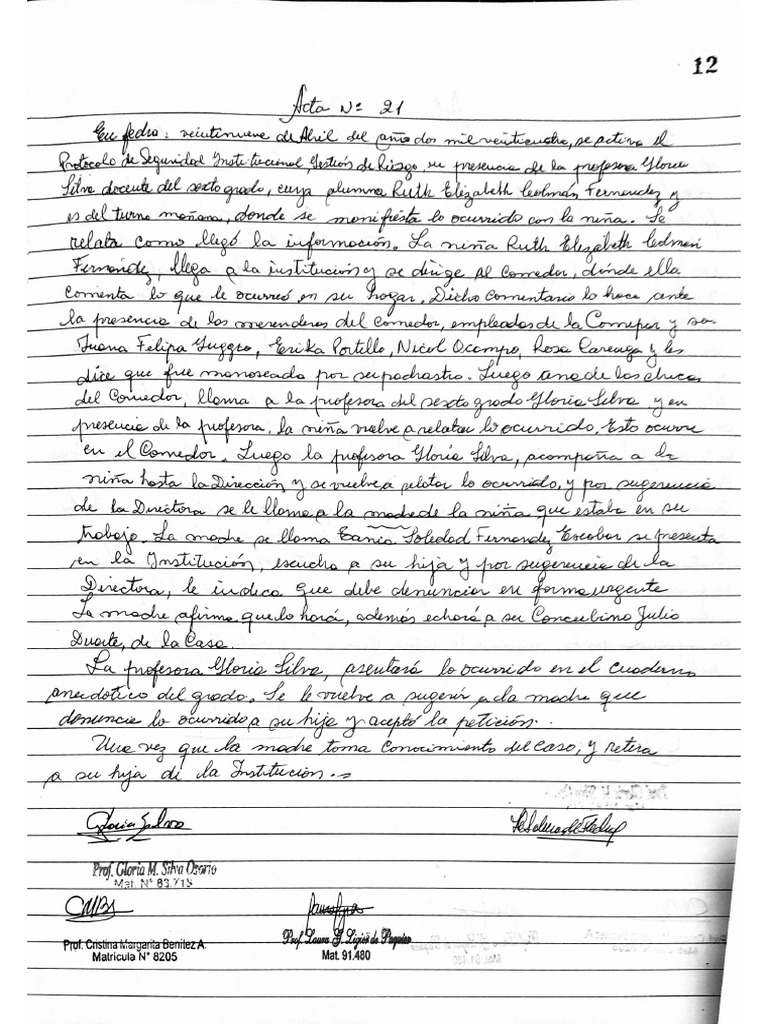 12
Acta Nº 21
En fecha: veintinueve de Abril del año dos mil veinticuatro, se activa el
Protocolo de Seguridad Institucional, Gestión de Riesgo, en presencia de la profesora Gloria
Silva docente del sexto grado, cuya alumna Ruth Elizabeth Colmán Fernandez y
es del turno mañana, donde se manifiesta lo ocurrido con la niña. Se
relata como llegó la información. La niña Ruth Elizabeth
Fernández, llega a la institución y se dirige al Comedor, dónde ella
comenta lo que le ocurrió en su hogar. Dicho comentario lo hace ante
la presencia de las merenderas del comedor, empleadas de la Comepar y son
Juana Felipa, Erika Portillo, Nicol Ocampo, Rosa Careaga y les
dice que fue manoseada por su padrastro. Luego una de las chicas
del Comedor, llama a la profesora del sexto grado Gloria Silva y en
presencia de la profesora, la niña vuelve a relatar lo ocurrido. Esto ocurre
en el Comedor. Luego la profesora Gloria Silva, acompaña a la
niña hasta la Dirección y se vuelve a relatar lo ocurrido, y por sugerencia
de la Directora se le llama a la madre de la niña que estaba en su
trabajo. La madre se llama Tania Soledad Fernandez Escobar se presenta
en la Institución, escucha a su hija y por sugerencia de la
Directora, le indica que debe denunciar en forma urgente
La madre afirma que lo hará, además echará a su Concubino Julio
Duarte, de la Casa.
La profesora Gloria Silva, asentará lo ocurrido en el cuaderno
anecdótico del grado. Se le vuelve a sugerir a la madre que
denuncie lo ocurrido a su hija y aceptó la petición.
Una vez que la madre toma conocimiento del caso, y retira
a su hija de la Institución.
Gloria Silva
Prof. Gloria M. Silva Osorio
Mat. Nº 83.715
Prof. Cristina Margarita Benítez A.
Matrícula Nº 8205
Prof. Laura G. de
Mat. 91.480